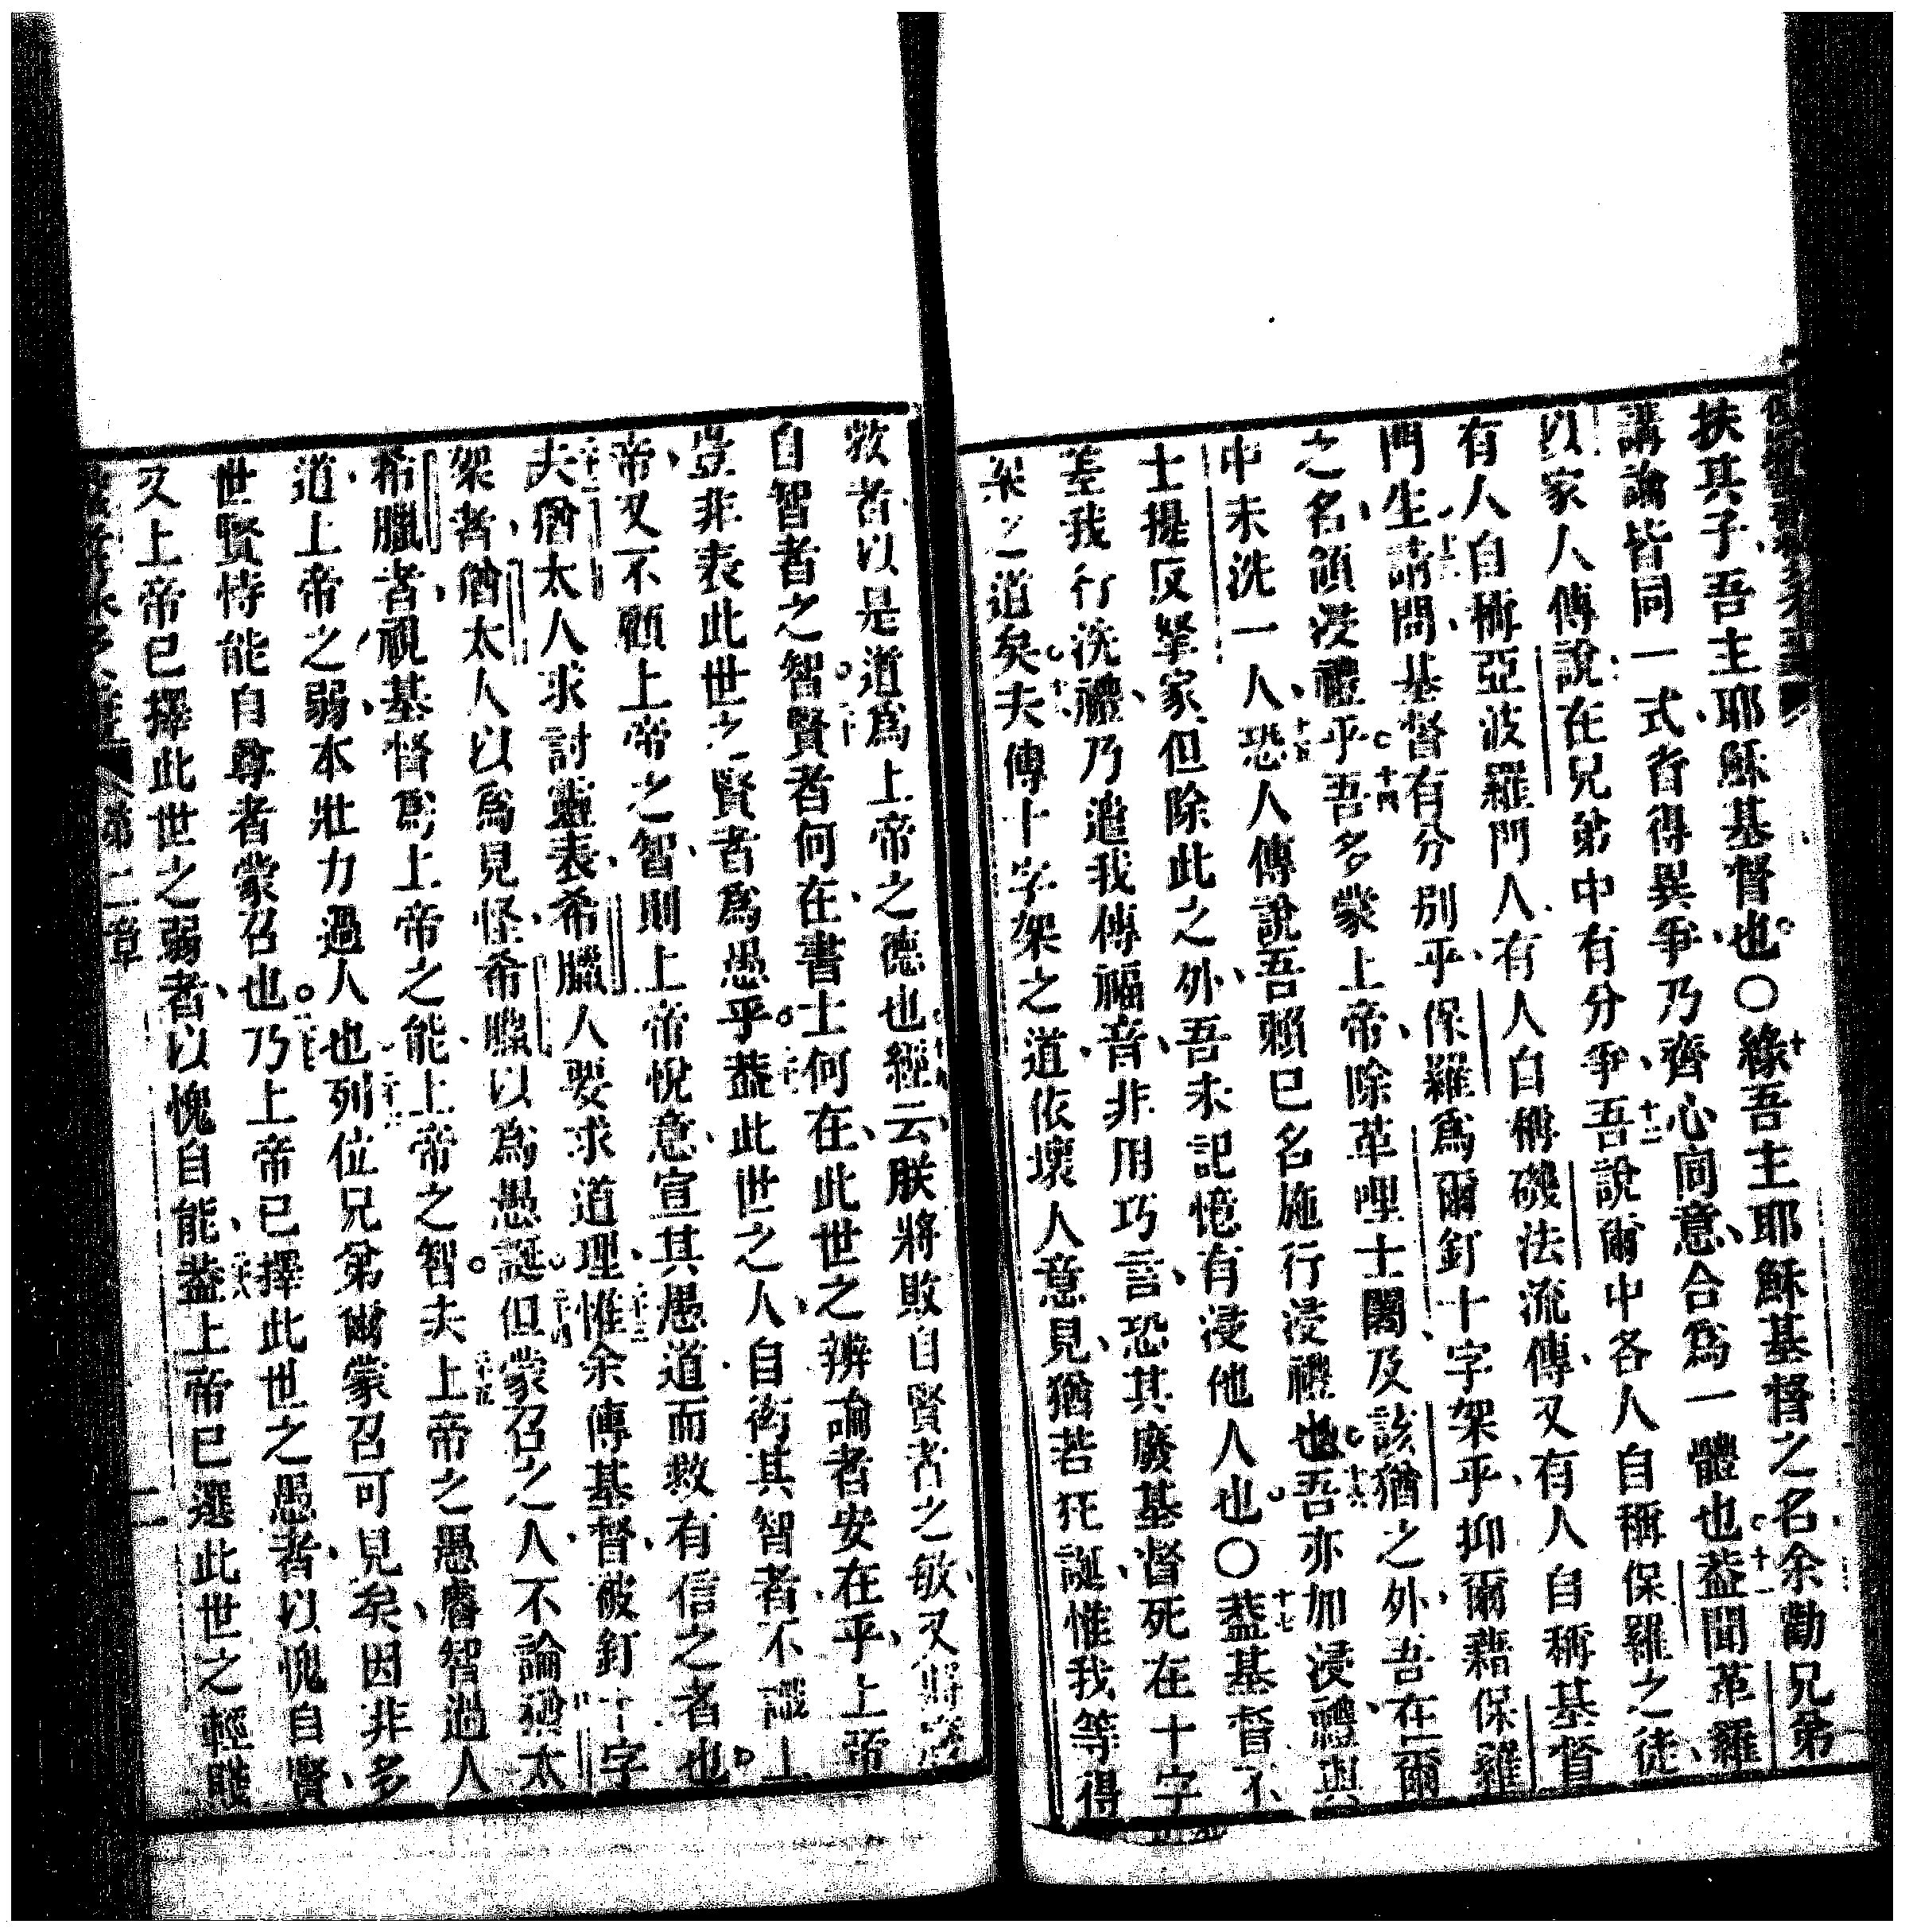 扶其子吾主耶穌基督也○緣吾主耶穌基督之名余勸兄弟
講論皆同一式者得異爭乃齊心同意合為一體也十一蓋聞革羅
以家人傳說在兄弟中有分爭十二吾說爾中各人自稱保羅之徒
有人自稱亞波羅門人有人自稱磯法流傳又有人自稱基督
門生請問基督有分別乎保羅為爾釘十字架乎抑爾藉保羅
之名領浸禮乎十四吾多蒙上帝除革哩士闍及該猶之外吾在爾
中未洗一人十五恐人傳說吾賴己名施行浸禮也十六吾亦加浸禮與
士提反拏家但除此之外吾未記憶有浸他人也○十七蓋基督不
差我行洗禮乃遣我傳福音非用巧言恐其廢基督死在十字
架之道矣夫傳十字架之道依壞人意見猶若狂誕惟我等得
救者以是道為上帝之德也經云朕將敗自賢者之敏又將廢
自智者之智二十賢者何在書士何在此世之辨論者安在乎上帝
豈非表此世之賢者為愚乎蓋此世之人自衒其智者不識上
帝又不顧上帝之智則上帝悅意宣其愚道而救有信之者也
夫猶太人求討靈表希臘人要求道理惟余傳基督被釘十字
架者猶太人以為見怪希臘以為愚誕但蒙召之人不論猶太
希臘者視基督為上帝之能上帝之智夫上帝之愚睿智過人
道上帝之弱本壯力過人也列位兄弟爾蒙召可見矣因非多
世賢恃能自尊者蒙召也乃上帝已擇此世之愚者以愧自賢
又上帝已擇此世之弱者以愧自能蓋上帝已選此世之輕賤
第一章
二